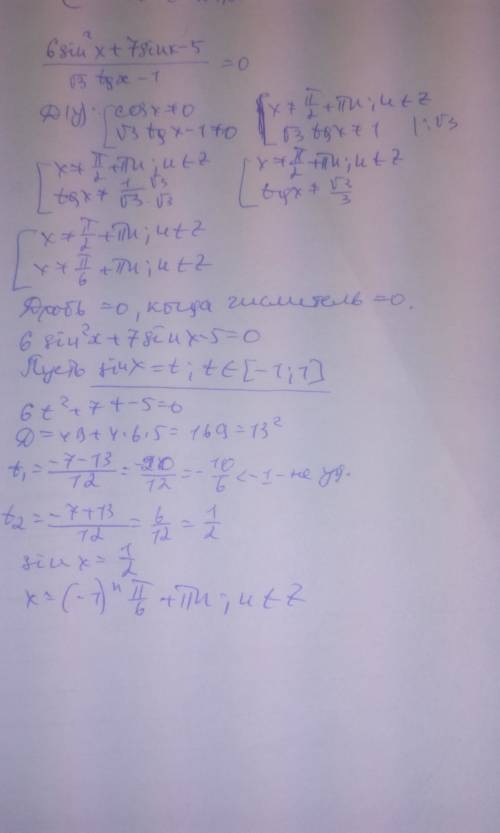 6sin²x+7sinx-5 / √3 tgx-1 =0
ДЧ: [cosx≠0 [x≠π/2+πn; n∈Z
√3 tgx-1≠0 √3 tgx≠1 |:√3
[x≠π/2+πn; n∈Z [x≠π/2+πn; n∈Z
tgx≠1/√3 ·√3/√3 tgx≠√3/3
[x≠π/2+πn; n∈Z
x≠π/6+πn; n∈Z
Дробь =0, когда числитель =0.
6 sin²x+7sinx-5=0
Пусть sinx=t; t∈[-1;1]
6t²+7t-5=0
Д=49+4·6·5=169=13²
t₁=-7-13/12=-20/12=-10/6<-1-не уд.
t₂=-7+13/12=6/12=1/2
sin x=1/2
x=(-1)ⁿ π/6+πn; n∈Z